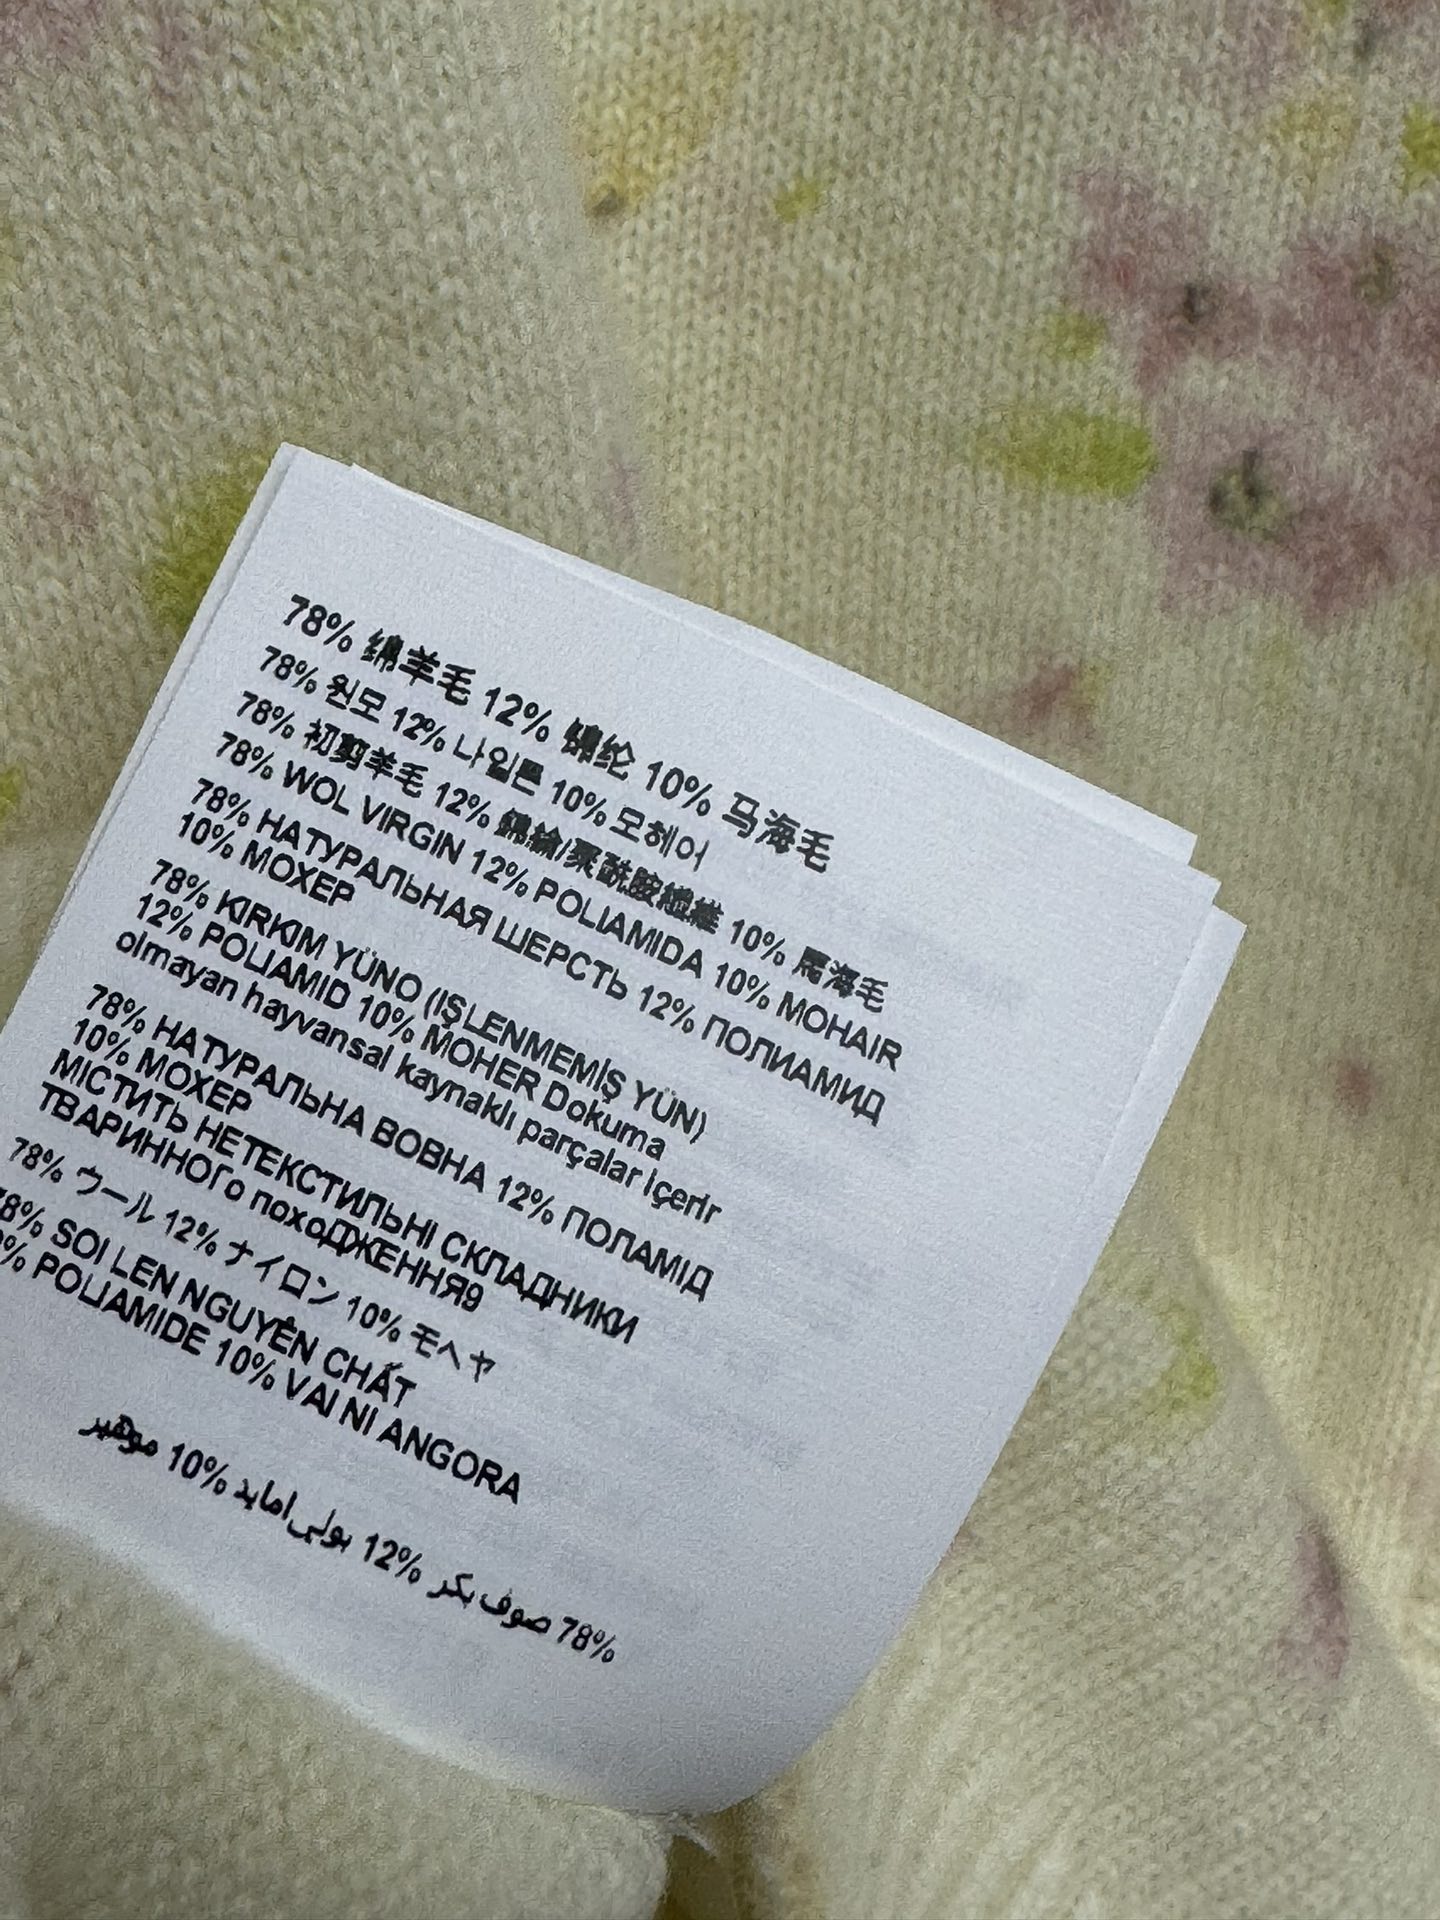 78% 绵羊毛 12% 锦纶 10% 马海毛
78% 원모 12% 나일론 10% 모헤어
78% 初剪羊毛 12% 錦綸/聚酰胺纖維 10% 馬海毛
78% WOL VIRGIN 12% POLIAMIDA 10% MOHAIR
78% НАТУРАЛЬНАЯ ШЕРСТЬ 12% ПОЛИАМИД
10% МОХЕР
78% KIRKIM YÜNO (IŞLENMEMİŞ YÜN)
12% POLIAMID 10% MOHER Dokuma
olmayan hayvansal kaynaklı parçalar içerir
78% НАТУРАЛЬНА ВОВНА 12% ПОЛАМІД
10% МОХЕР
МІСТИТЬ НЕТЕКСТИЛЬНІ СКЛАДНИКИ
ТВАРИННОГо похоДЖЕННЯ9
78% ウール 12% ナイロン 10% モヘヤ
78% SOI LEN NGUYÊN CHẤT
% POLIAMIDE 10% VAI NI ANGORA
78% صوف بكر 12% بولي امايد 10% موهير